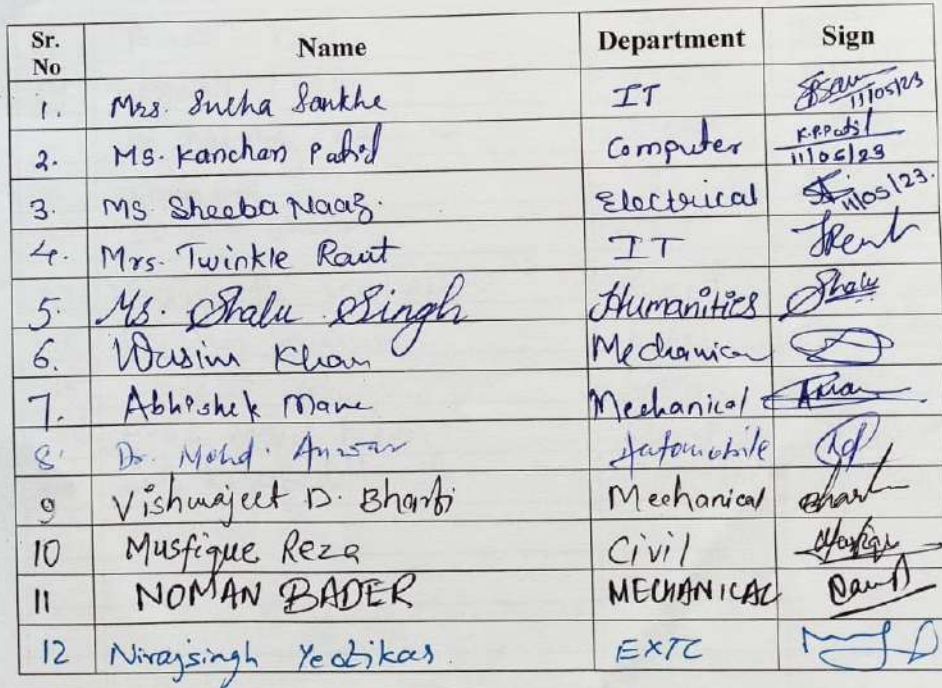 Sr. No Name Department Sign
1. Mrs. Sneha Sankhe IT 11/05/23
2. Ms. Kanchan Patil Computer K.P.Patil 11/05/23
3. MS. Sheeba Naaz. Electrical 11/05/23.
4. Mrs. Twinkle Raut IT
5. Ms. Shalu Singh Humanities Shalu
6. Wasim Khan Mechanical
7. Abhishek Mane Mechanical
8. Dr. Mohd. Anwar Automobile
9 Vishwajeet D. Bharti Mechanical
10 Musfique Reza Civil
11 NOMAN BADER MECHANICAL
12 Nirajsingh Yeotikar. EXTC